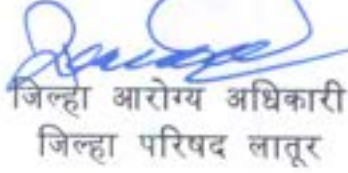 जिल्हा आरोग्य अधिकारी
जिल्हा परिषद लातूर